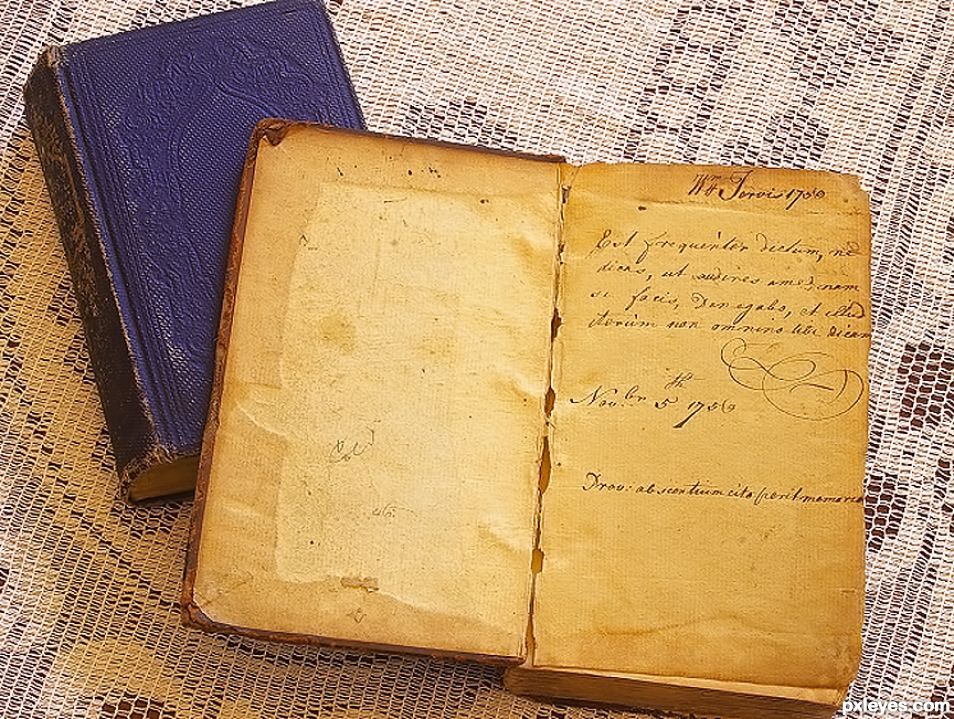 Wm Jervis 1756
Est frequenter dictum, ne
dicas, ut auderes amed, nam
si facis, Denegabo, et illud
iterum non omnino tibi dicam
Novbr 5th 1756
Prov: abscentium cito perit memoria
pxleyes.com